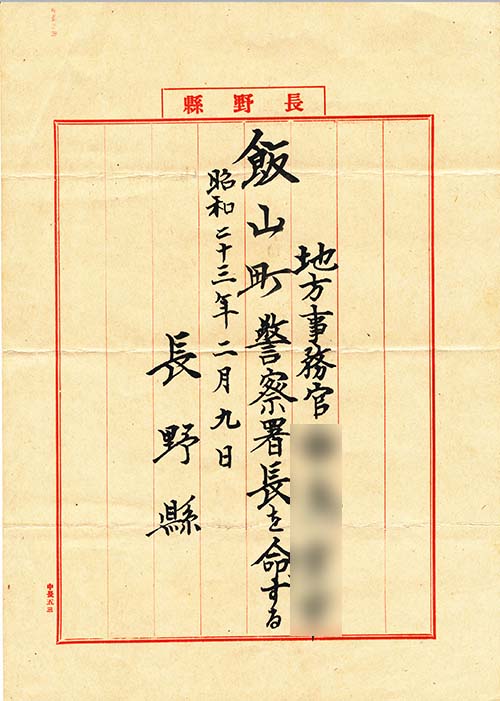 長野縣
地方事務官
飯山町警察署長を命ずる
昭和二十三年二月九日
長野縣